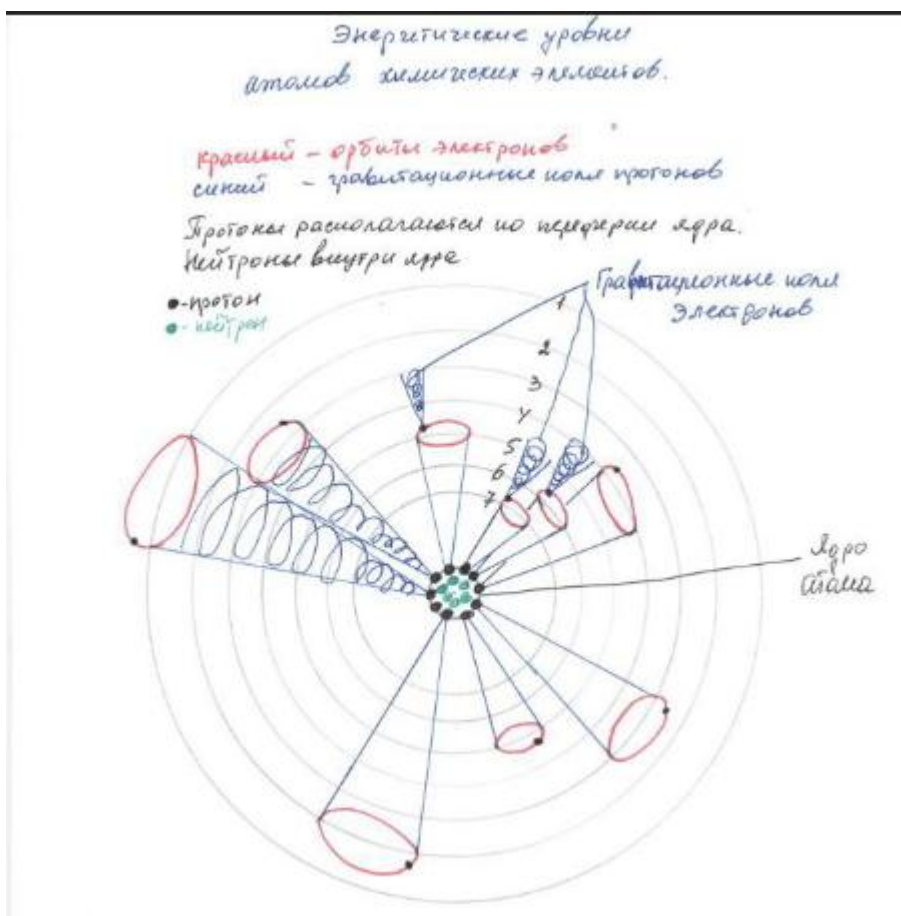 Энергитические уровни
атомов химических элементов.
красный - орбиты электронов
синий - гравитационные поля протонов
Протоны располагаются по перефирии ядра.
Нейтроны внутри ядра
- протон
- нейтрон
Гравитационные поля
электронов
1
2
3
4
5
6
7
Ядро
атома